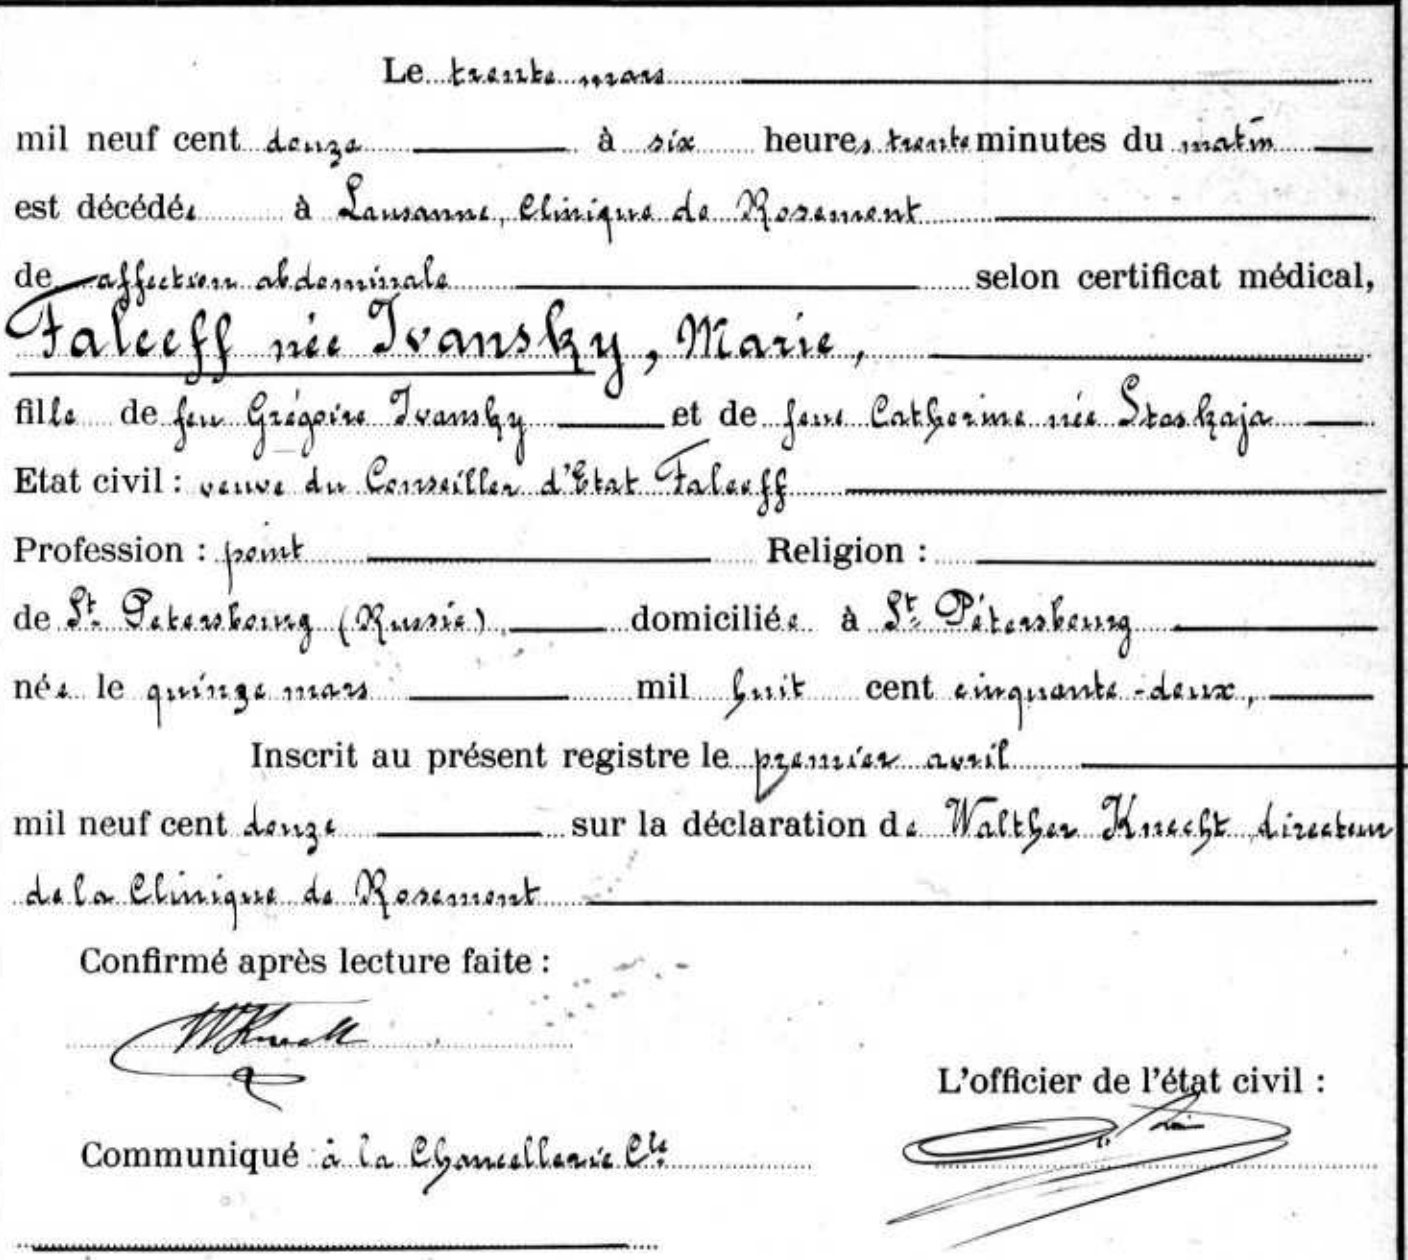 Le trente mars
mil neuf cent douze à six heures trente minutes du matin
est décédée à Lausanne, Clinique de Rosemont
de affection abdominale selon certificat médical,
Faleeff née Ivansky, Marie,
fille de feu Grégoire Ivansky et de feue Catherine née Staskaja
Etat civil : veuve du Conseiller d'Etat Faleeff
Profession : point Religion :
de St. Petersbourg (Russie) domiciliée à St. Pétersbourg
née le quinze mars mil huit cent cinquante-deux,
Inscrit au présent registre le premier avril
mil neuf cent douze sur la déclaration de Walther Knecht directeur
de la Clinique de Rosemont
Confirmé après lecture faite :
WKnecht
L'officier de l'état civil :
Communiqué à la Chancellerie Cle